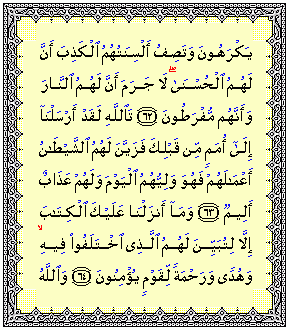 يَكْرَهُونَ وَتَصِفُ أَلْسِنَتُهُمُ ٱلْكَذِبَ أَنَّ
لَهُمُ ٱلْحُسْنَىٰ ۖ لَا جَرَمَ أَنَّ لَهُمُ ٱلنَّارَ
وَأَنَّهُم مُّفْرَطُونَ ٦٢ تَٱللَّهِ لَقَدْ أَرْسَلْنَآ
إِلَىٰٓ أُمَمٍ مِّن قَبْلِكَ فَزَيَّنَ لَهُمُ ٱلشَّيْطَٰنُ
أَعْمَٰلَهُمْ فَهُوَ وَلِيُّهُمُ ٱلْيَوْمَ وَلَهُمْ عَذَابٌ
أَلِيمٌ ٦٣ وَمَآ أَنزَلْنَا عَلَيْكَ ٱلْكِتَٰبَ
إِلَّا لِتُبَيِّنَ لَهُمُ ٱلَّذِى ٱخْتَلَفُوا۟ فِيهِ ۙ
وَهُدًى وَرَحْمَةً لِّقَوْمٍ يُؤْمِنُونَ ٦٤ وَٱللَّهُ